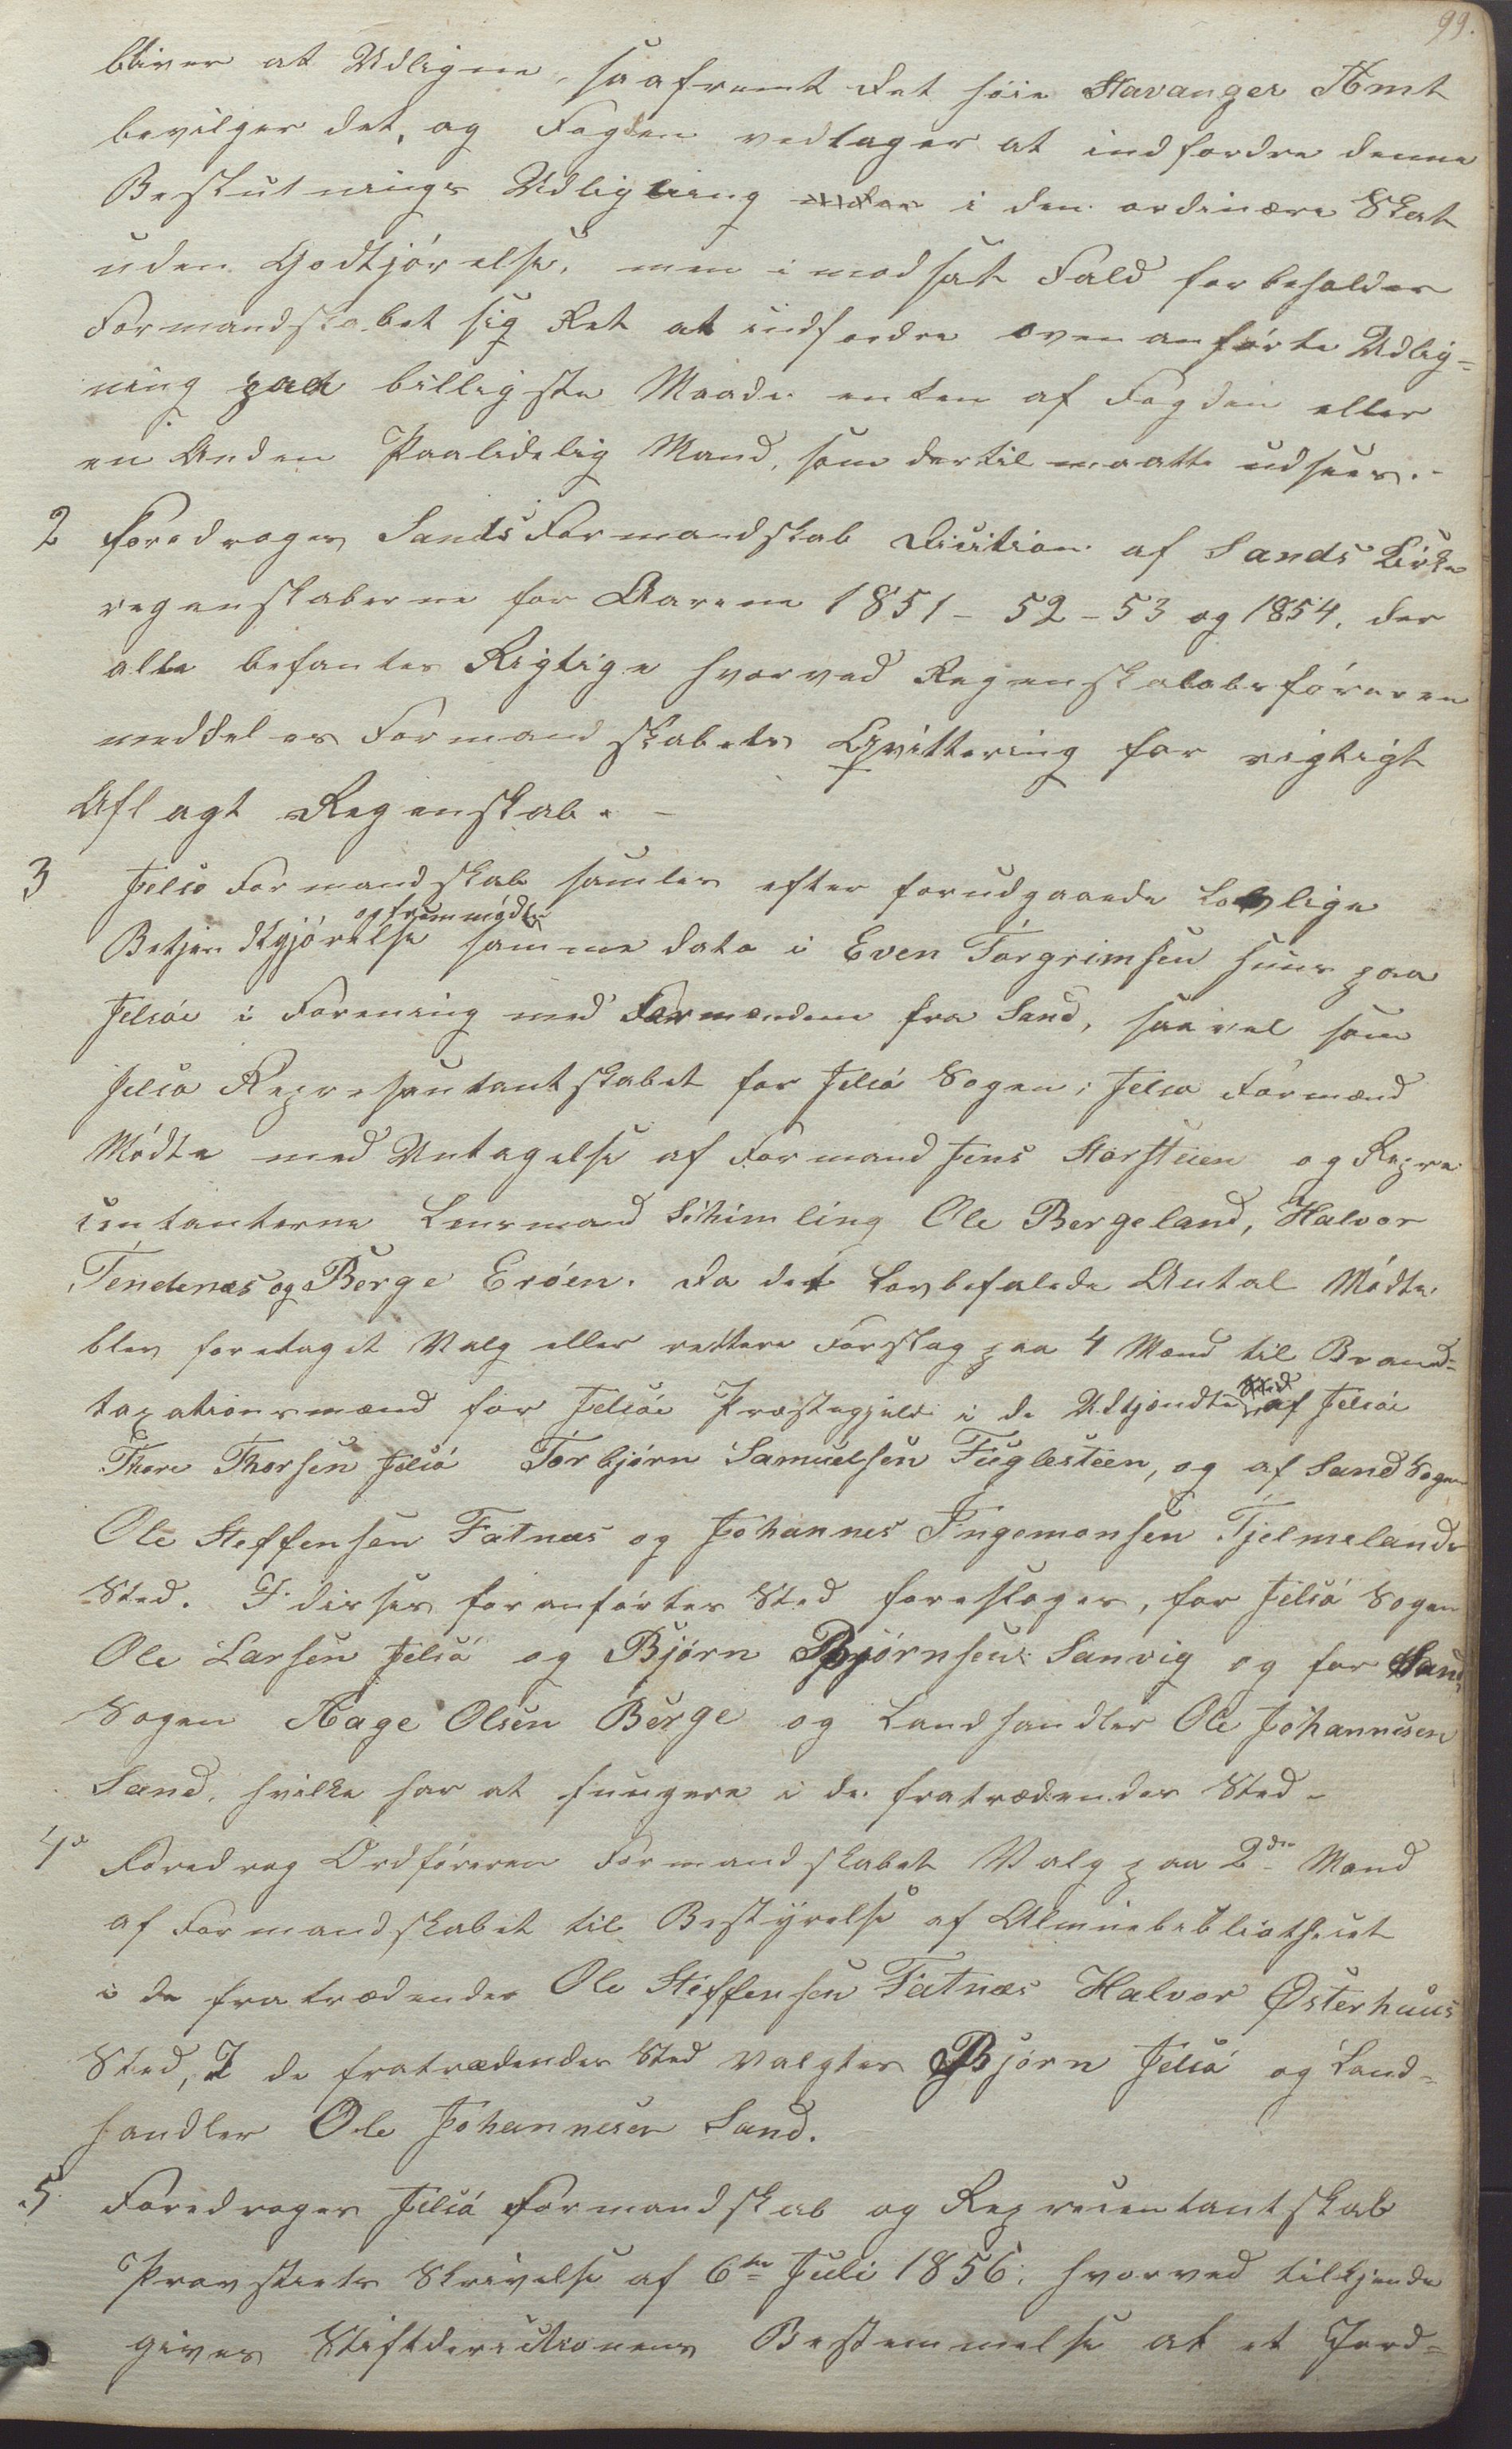 99.
bliver at Udligne, saafremt det høie Stavanger Amt
bevilger det, og Fogden vedtager at indfordre denne
Beslutnings Udligning i den ordinære Skat
uden Godtjörelse, men i modsat Fald forbeholder
Formandskabet sig Ret at indfordre ovenanførte Udlig=
ning paa billigste Maade enten af Fogden eller
en Anden Paalidelig Mand, som dertil maatte udsees.-
2 Foredroges Sands Formandskab Dicition af Sands Kirke
regenskaberne for Aarene 1851 - 52 - 53 og 1854, der
alle befantes Rigtige hvorved Regenskabsføreren
meddeles Formandskabets Qvittering for rigtigt
Aflagt Regenskab. -
3 Jelsø Formandskab samles efter forudgaaende lovlige
Betjendtgjörelse samme dato i Even Torgrimsen Huus paa
og fremmödte
Jelsöe i Forening med Formændene fra Sand, saavel som
Jelsø Represantantskabet for Jelsö Sogen; Jelsø Formænd
Mödte med Untagelse af Formand Jens Storsteen og Repre
sentanterne Lensmand Schimling Ole Bergeland, Halvor
Tendenæs og Berge Eröen. Da det Lovbefalede Antal Mödte
blev foretaget Valg eller rettere Forslag paa 4 Mænd til Brand=
taxationsmænd for Jelsöe Præstegjeld i de Udtjendte Sted af Jelsöe
Thore Thorsen Jelsö Torbjørn Samuelsen Fuglesteen, og af Sand Sogen
Ole Steffensen Fatnæs og Johannes Ingemonsen Tjelmelands
Sted. I disses foranförtes Sted foresloges, for Jelsö Sogen
Ole Larsen Jelsö og Bjørn Bjørnsen Sanvig og for Sand
Sogen Aage Olsen Berge og Landhandler Ole Johannesen
Sand, hvilke har at fungere i de fratrædendes Sted -
4de Foredrog Ordföreren Formandskabet Valg paa 2de Mænd
af Formandskabet til Bestyrelse af Almuebibliothecet
i de fratrædendes Ole Steffensen Fatnæs Halvor Østerhuus
Sted, I de fratrædendes Sted Valgtes Bjørn Jelsö og Land=
handler Ole Johannesen Sand.
5 Foredroges Jelsö Formandskab og Represientantskab
Provstiets Skrivelse af 6te Juli 1856, hvorved tilkjende
gives Stiftderictionens Bestemmelse at et Jord=